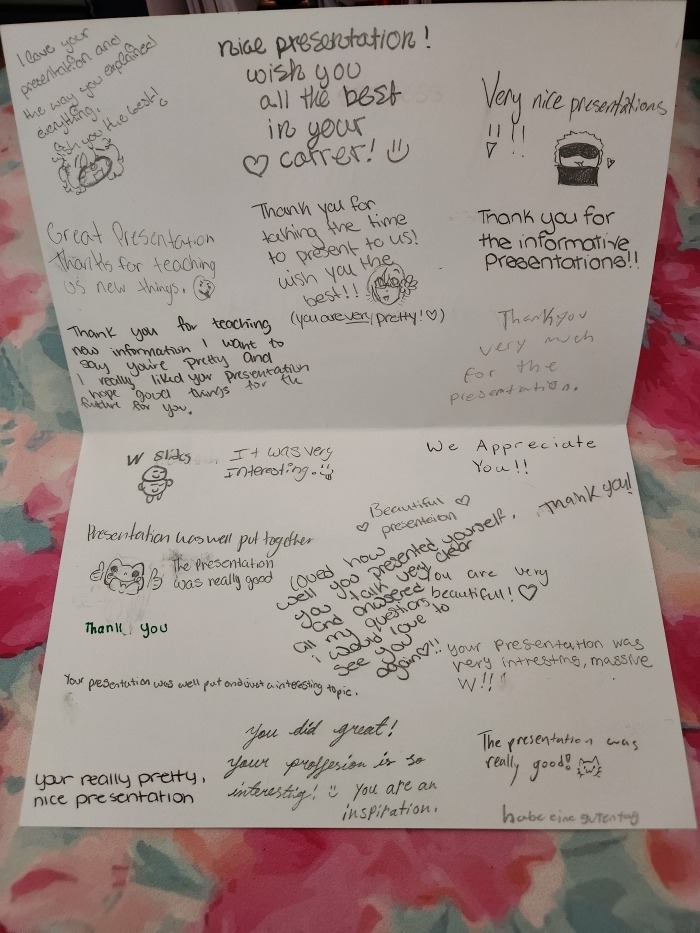 I love your
presentation and
the way you explained
everything.
wish you the best!
nice presentation!
wish you
all the best
in your
carrer!
Very nice presentations
!!!
Great Presentation
Thanks for teaching
us new things.
Thank you for
taking the time
to present to us!
wish you the
best!!
(you are very pretty!)
Thank you for
the informative
Presentations!!
Thank you for teaching
new information I want to
say you're pretty and
I really liked your presentation
hope good things for the
future for you.
Thank you
very much
for the
presentation.
W Slides
It was very
interesting.
We Appreciate
You!!
Presentation was well put together
The Presentation
was really good
Thank you
Beautiful
presentaion
Thank you!
loved how
well you presented yourself.
you talk very clear
and answered
all my questions
i would love to
see you
again!!
You are very
beautiful!
Your presentation was
very intresting, massive
W!!!
Your presentation was well put and just a interesting topic.
your really pretty,
nice presentation
You did great!
Your proffesion is so
interestig! You are an
inspiration.
The presentation was
really good!
habe eine gutentag